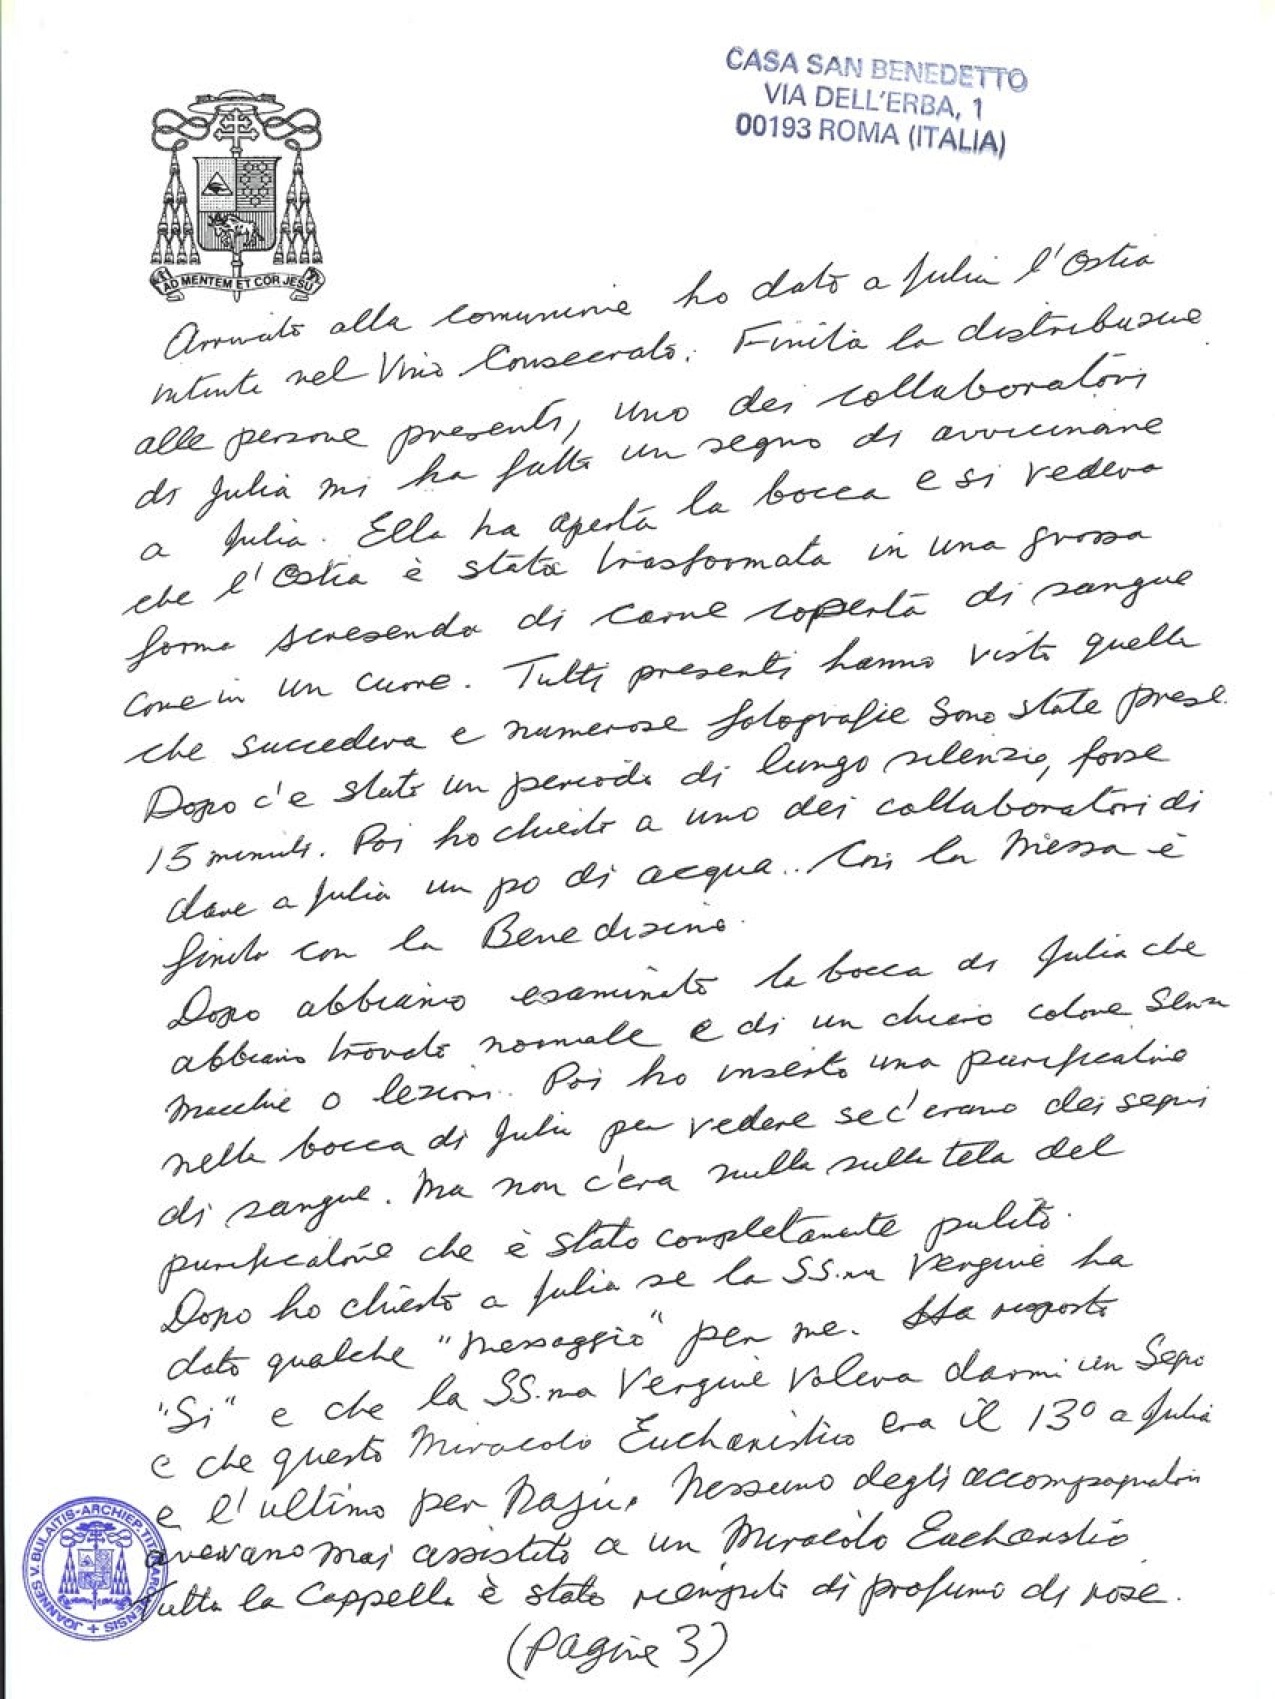 CASA SAN BENEDETTO
VIA DELL'ERBA, 1
00193 ROMA (ITALIA)
AD MENTEM ET COR JESU
Arrivato alla comunione ho dato a Julia l'Ostia
intinta nel Vino Consecrato. Finita la distribuzione
alle persone presenti, uno dei collaboratori
di Julia mi ha fatto un segno di avvicinare
a Julia. Ella ha aperta la bocca e si vedeva
che l'Ostia è stata trasformata in una grossa
forma scresenda di carne coperta di sangue
come in un cuore. Tutti presenti hanno visto quello
che succedeva e numerose fotografie sono state prese.
Dopo c'e stato un periodo di lungo silenzio, forse
15 minuti. Poi ho chiesto a uno dei collaboratori di
dare a Julia un po di acqua.. Così la Messa è
finita con la Benedizione.
Dopo abbiamo esaminato la bocca di Julia che
abbiamo trovato normale e di un chiaro colore senza
macchie o lezioni. Poi ho inserto una purificatoio
nella bocca di Julia per vedere se c'erano dei segni
di sangue. Ma non c'era nulla sulla tela del
purificatoio che è stato completamente pulito.
Dopo ho chiesto a Julia se la SS.ma Vergine ha
dato qualche "messaggio" per me. Ha risposto
"Si" e che la SS.ma Vergine voleva darmi un Segno
e che questo Miracolo Eucharistico era il 13º a Julia
e l'ultimo per Naju. Nessuno degli accompagnatori
avevano mai assistito a un Miracolo Eucharistico
Tutta la Cappella è stato riempito di profumo di rose.
(Pagine 3)
JOANNES V. BULAITIS-ARCHIEP. TIT. NARONENSIS +